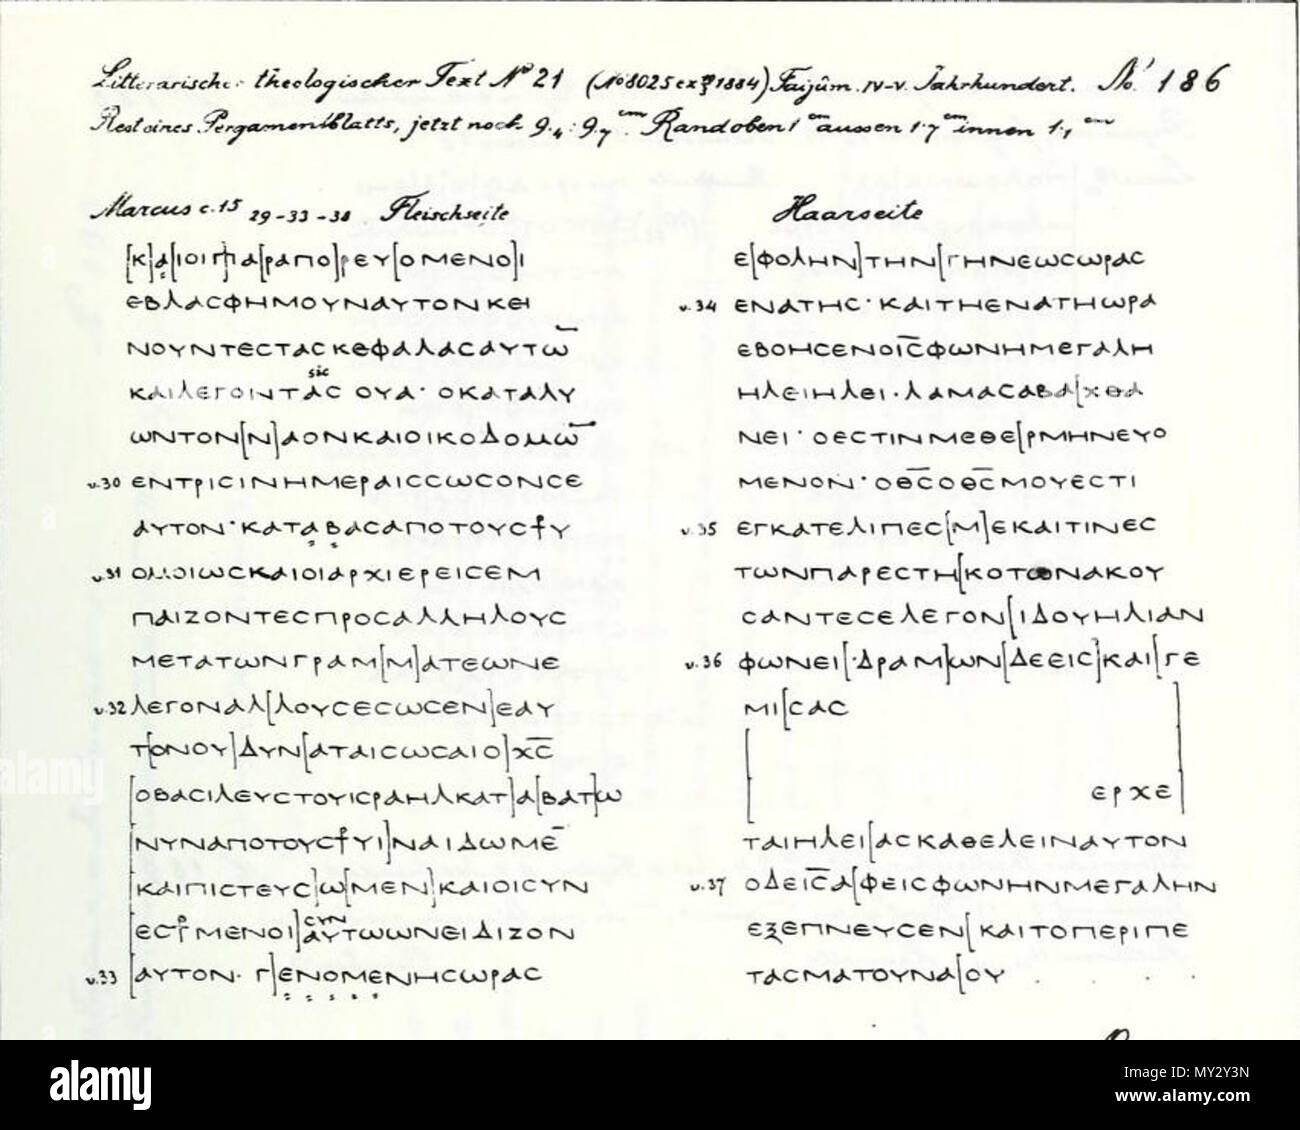 Litterarischer theologischer Text No 21 (No 8025 ex 1884) Faijûm. IV-V. Jahrhundert. No. 186
Rest eines Pergamentblatts, jetzt noch 9.4 : 9.7 cm. Rand oben 1 cm aussen 1.7 cm innen 1.1 cm
Marcus c. 15 29-33-38 Fleischseite
[Κ]Α[ΙΟΙΠ]ΑΡ[ΑΠΟ]ΡΕΥ[ΟΜΕΝΟ]Ι
ΕΒΛΑCΦΗΜΟΥΝΑΥΤΟΝΚΕΙ
ΝΟΥΝΤΕCΤΑCΚΕΦΑΛΑCΑΥΤω̅
sic
ΚΑΙΛΕΓΟΙΝΤΑC ΟΥΑ· ΟΚΑΤΑΛΥ
ωΝΤΟΝ[Ν]ΑΟΝΚΑΙΟΙΚΟΔΟΜω̅
v.30 ΕΝΤΡΙCΙΝΗΜΕΡΑΙCCωCΟΝCΕ
ΑΥΤΟΝ·ΚΑΤΑΒΑCΑΠΟΤΟΥC⳨Υ
v.31 ΟΜΟΙωCΚΑΙΟΙΑΡΧΙΕΡΕΙCΕΜ
ΠΑΙΖΟΝΤΕCΠΡΟCΑΛΛΗΛΟΥC
ΜΕΤΑΤωΝΓΡΑΜ[Μ]ΑΤΕωΝΕ
v.32 ΛΕΓΟΝΑΛ[ΛΟΥCΕCωCΕΝ]ΕΑΥ
Τ[ΟΝΟΥ]ΔΥΝ[ΑΤΑΙCωCΑΙΟ]Χ̅C̅
[ΟΒΑCΙΛΕΥCΤΟΥΙCΡΑΗΛΚΑΤ]Α[ΒΑΤ]ω
[ΝΥΝΑΠΟΤΟΥC⳨ΥΙ]ΝΑΙΔωΜΕ̅
[ΚΑΙΠΙCΤΕΥC]ω[ΜΕΝ]ΚΑΙΟΙCΥΝ
CΥΝ
[ΕC⳨ΜΕΝΟΙ]ΑΥΤωωΝΕΙΔΙΖΟΝ
v.33 [ΑΥΤΟΝ· Γ]ΕΝΟΜΕΝΗCωΡΑC
Haarseite
Ε[ΦΟΛΗΝ]ΤΗΝ[ΓΗΝΕωCωΡΑC
v.34 ΕΝΑΤΗC·ΚΑΙΤΗΕΝΑΤΗωΡΑ
ΕΒΟΗCΕΝΟΙ̅C̅ΦωΝΗΜΕΓΑΛΗ
ΗΛΕΙΗΛΕΙ·ΛΑΜΑCΑΒΑ[ΧΘΑ
ΝΕΙ· ΟΕCΤΙΝΜΕΘΕ[ΡΜΗΝΕΥΟ
ΜΕΝΟΝ·ΟΘ̅C̅ΟΘ̅C̅ΜΟΥΕCΤΙ
v.35 ΕΓΚΑΤΕΛΙΠΕC[Μ]ΕΚΑΙΤΙΝΕC
ΤωΝΠΑΡΕCΤΗ[ΚΟΤωΝΑΚΟΥ
CΑΝΤΕCΕΛΕΓΟΝ[ΙΔΟΥΗΛΙΑΝ
v.36 ΦωΝΕΙ[·ΔΡΑΜ]ωΝ[ΔΕΕΙC]ΚΑΙ[ΓΕ
ΜΙ[CΑC
[ ΕΡΧΕ]
ΤΑΙΗΛΕΙ[ΑCΚΑΘΕΛΕΙΝΑΥΤΟΝ
v.37 ΟΔΕΙ̅C̅Α[ΦΕΙCΦωΝΗΝΜΕΓΑΛΗΝ
ΕΞΕΠΝΕΥCΕΝ[ΚΑΙΤΟΠΕΡΙΠΕ
ΤΑCΜΑΤΟΥΝΑ[ΟΥ . . .
alamy
alamy
Image ID: MY2Y3N
www.alamy.com